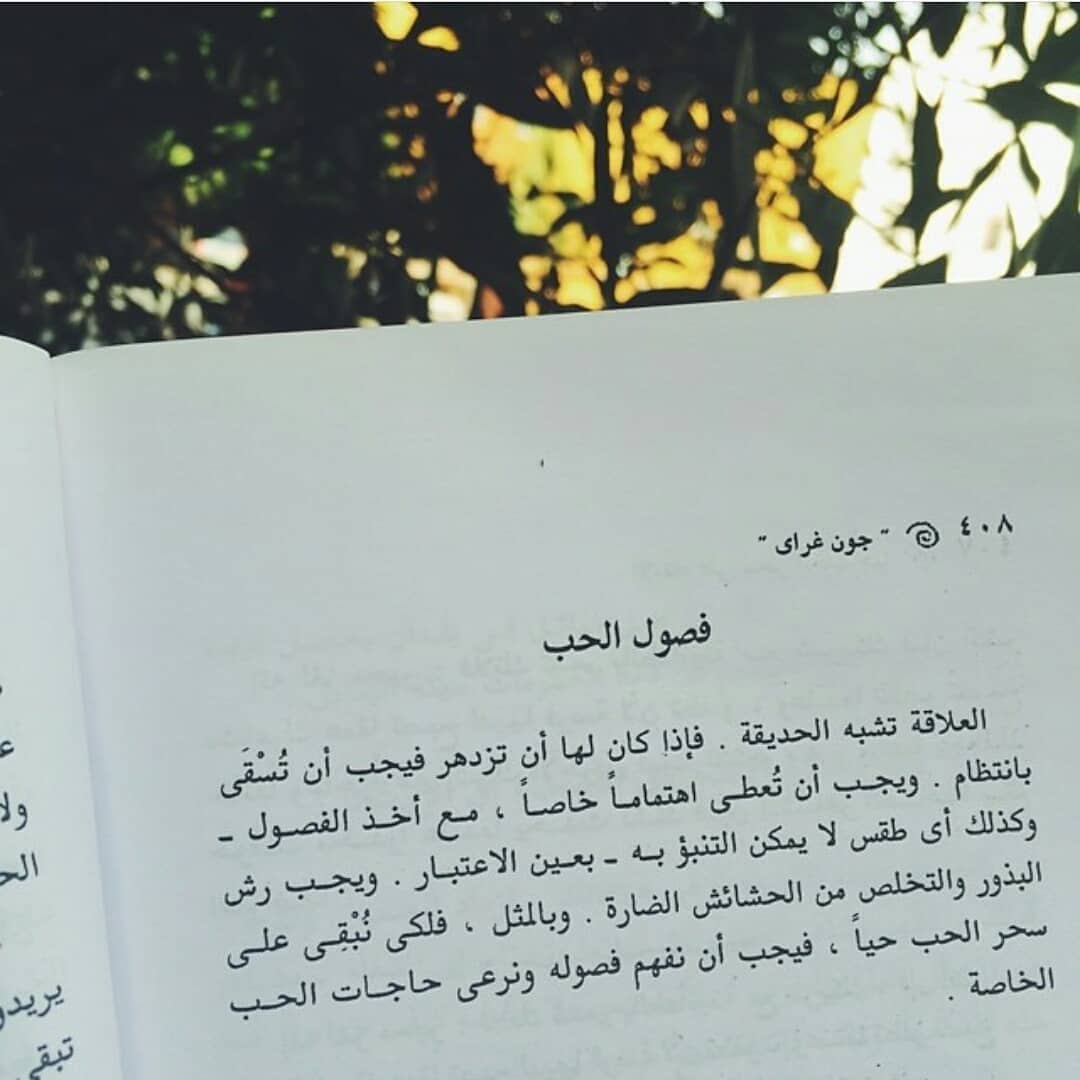 ٤٠٨ " جون غراى "
فصول الحب
العلاقة تشبه الحديقة . فإذا كان لها أن تزدهر فيجب أن تُسْقَى
بانتظام . ويجب أن تُعطى اهتماماً خاصاً ، مع أخذ الفصول ـ
وكذلك أى طقس لا يمكن التنبؤ به ـ بعين الاعتبار . ويجب رش
البذور والتخلص من الحشائش الضارة . وبالمثل ، فلكى نُبْقِى على
سحر الحب حياً ، فيجب أن نفهم فصوله ونرعى حاجات الحب
الخاصة .